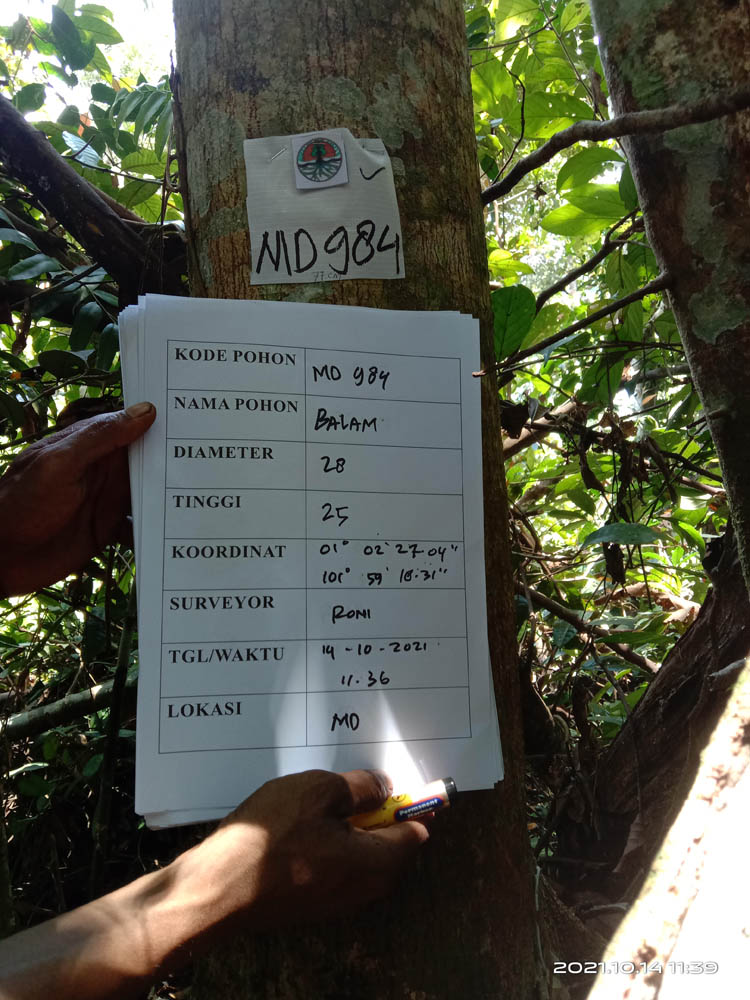 MD 984
77 cm
KODE POHON MD 984
NAMA POHON BALAM
DIAMETER 28
TINGGI 25
KOORDINAT 01° 02' 27.04"
101° 59' 18.31"
SURVEYOR RONI
TGL/WAKTU 14-10-2021
11.36
LOKASI MD
Permanent
Marker
2021.10.14 11:39